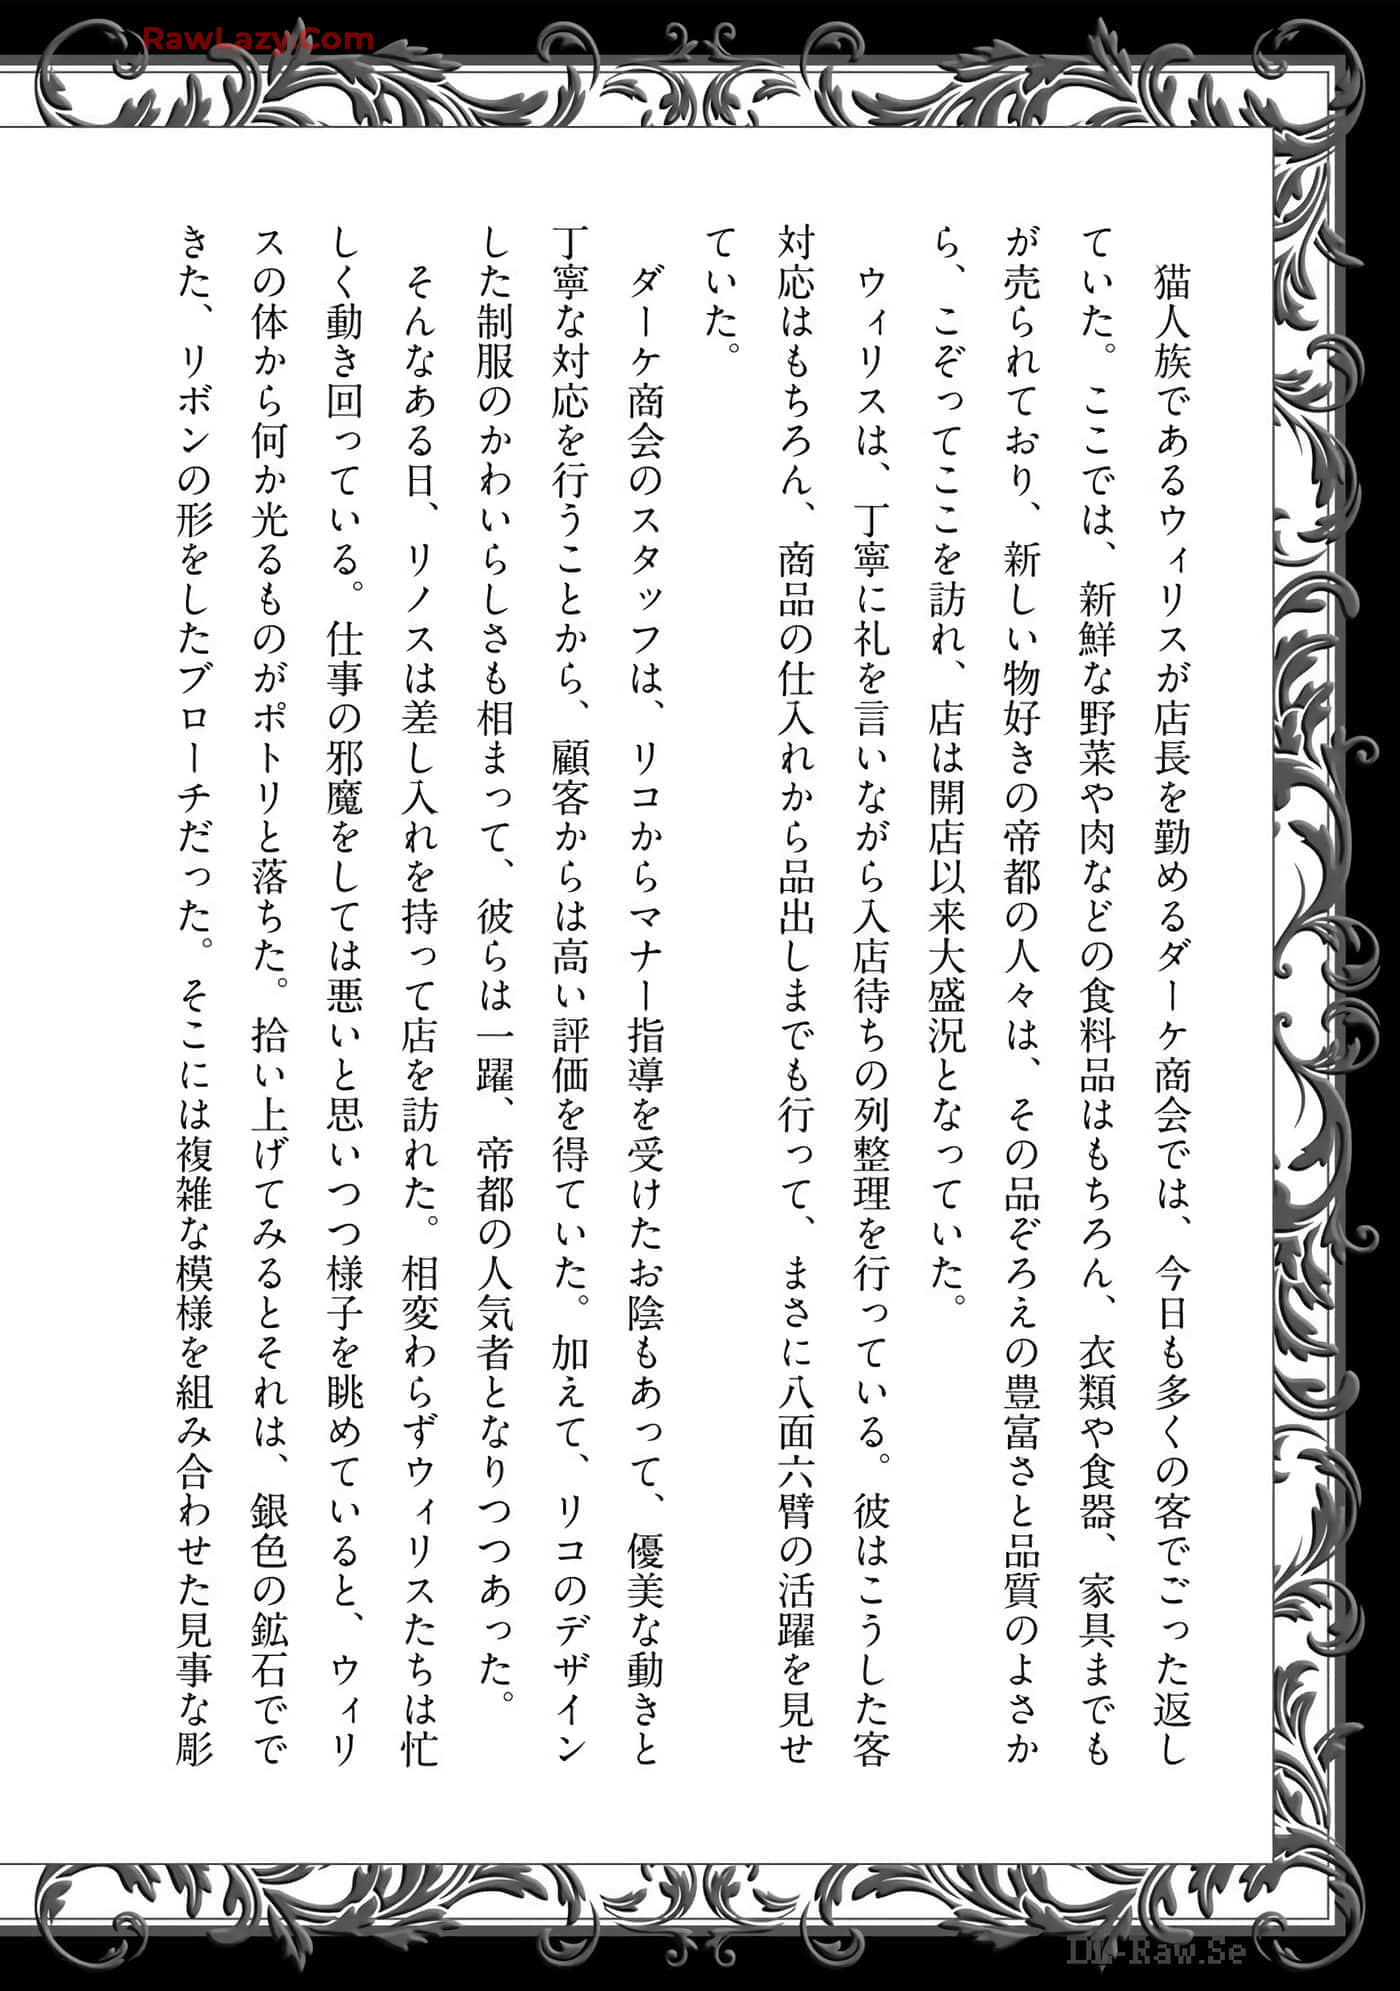 RawLazy.Com
猫人族であるウィリスが店長を勤めるダーケ商会では、今日も多くの客でごった返し
ていた。ここでは、新鮮な野菜や肉などの食料品はもちろん、衣類や食器、家具までも
が売られており、新しい物好きの帝都の人々は、その品ぞろえの豊富さと品質のよさか
ら、こぞってここを訪れ、店は開店以来大盛況となっていた。
ウィリスは、丁寧に礼を言いながら入店待ちの列整理を行っている。彼はこうした客
対応はもちろん、商品の仕入れから品出しまでも行って、まさに八面六臂の活躍を見せ
ていた。
ダーケ商会のスタッフは、リコからマナー指導を受けたお陰もあって、優美な動きと
丁寧な対応を行うことから、顧客からは高い評価を得ていた。加えて、リコのデザイン
した制服のかわいらしさも相まって、彼らは一躍、帝都の人気者となりつつあった。
そんなある日、リノスは差し入れを持って店を訪れた。相変わらずウィリスたちは忙
しく動き回っている。仕事の邪魔をしては悪いと思いつつ様子を眺めていると、ウィリ
スの体から何か光るものがポトリと落ちた。拾い上げてみるとそれは、銀色の鉱石でで
きた、リボンの形をしたブローチだった。そこには複雑な模様を組み合わせた見事な彫
DL-Raw.Se